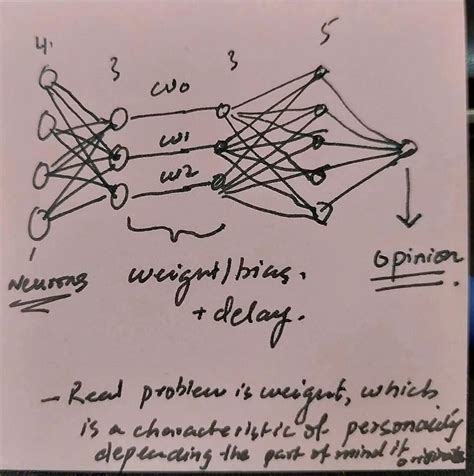 4.
3
3
5
w0
w1
w2
1
Neurons
weight/bias.
+ delay.
opinion
- Real problem is weight, which
is a characteristic of personality
depending the part of mind it